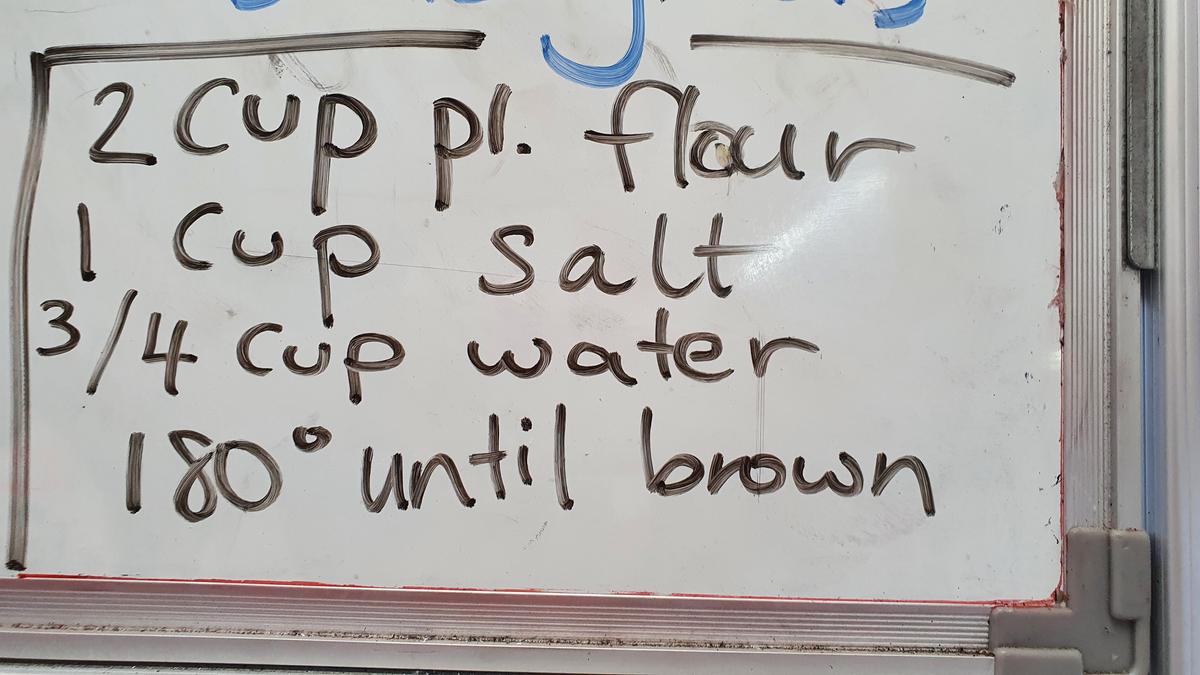 2 cup pl. flour
1 cup salt
3/4 cup water
180° until brown